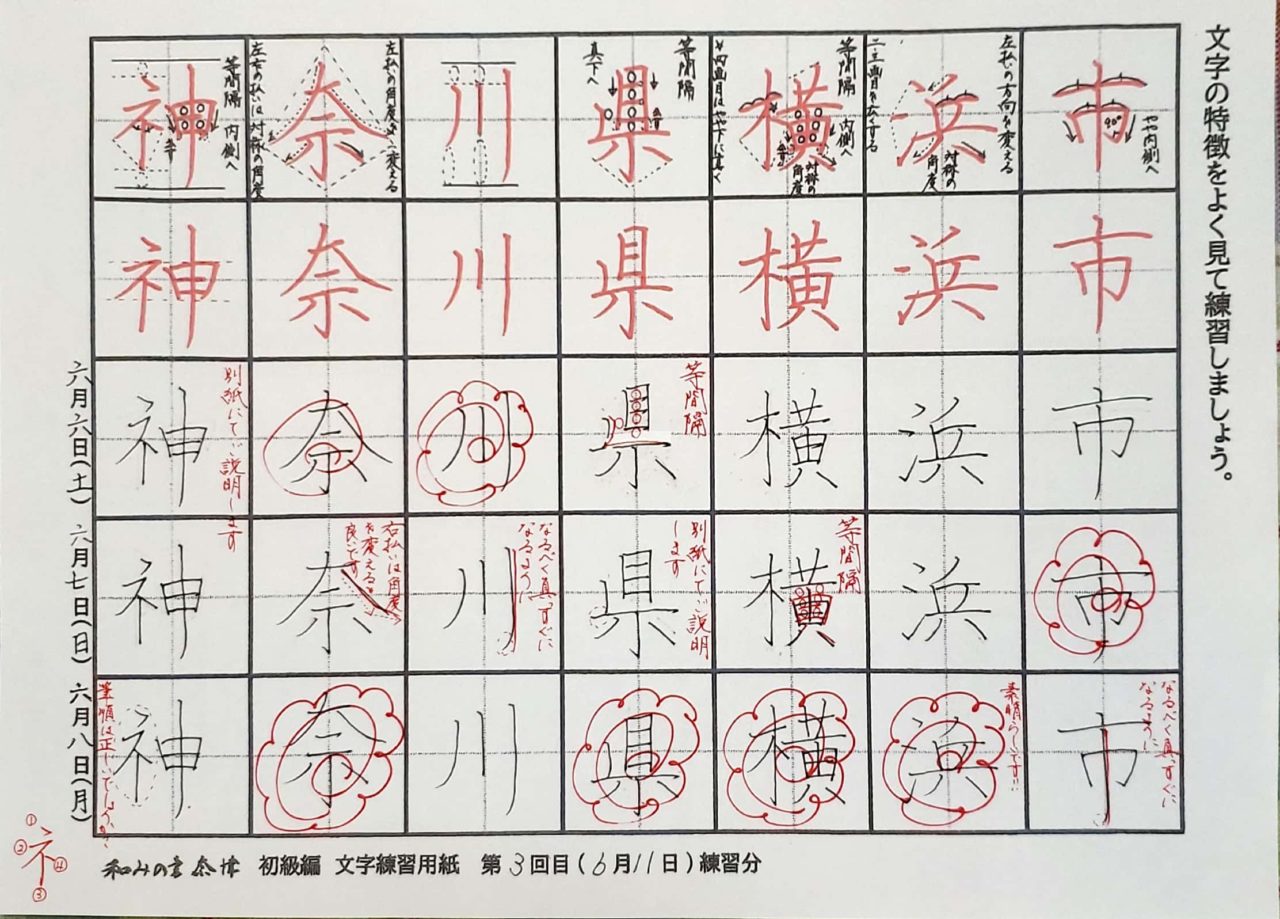 文字の特徴をよく見て練習しましょう。
市
やや内側へ
90°
浜
左払いの方向を変える
対称の角度
二、三画目を広くする
横
等間隔 内側へ
対称の角度
半分
四画目はやや下に真く
県
等間隔
真下へ
半分
川
奈
左払いの角度を変える
左右の払いは対称の角度
神
等間隔 内側へ
半分
市
浜
横
県
川
奈
神
六月六日(土)
市
浜
横
県
等間隔
川
奈
神
別紙にてご説明します
六月七日(日)
市
浜
横
等間隔
県
別紙にてご説明します
川
なるべく真っすぐになるように
奈
右払いは角度を変えると良いです
神
六月八日(月)
市
なるべく真っすぐになるように
浜
素晴らしいです!!
横
県
川
奈
神
筆順は正しいでしょうか?
ネ
①
②
③
④
和みの書 初級編 文字練習用紙 第3回目(6月11日)練習分